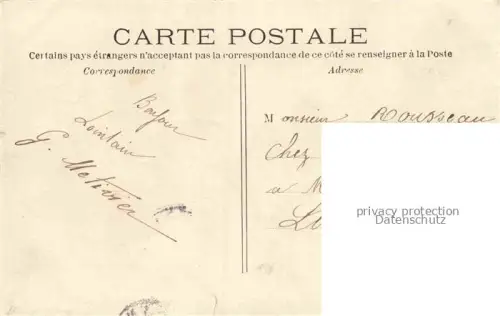 CARTE POSTALE
Certains pays étrangers n'acceptant pas la correspondance de ce côté se renseigner à la Poste
Correspondance
Adresse
Bonjour
Lointain
G. Metivier
Monsieur Rousseau
Chez
a M
privacy protection
Datenschutz